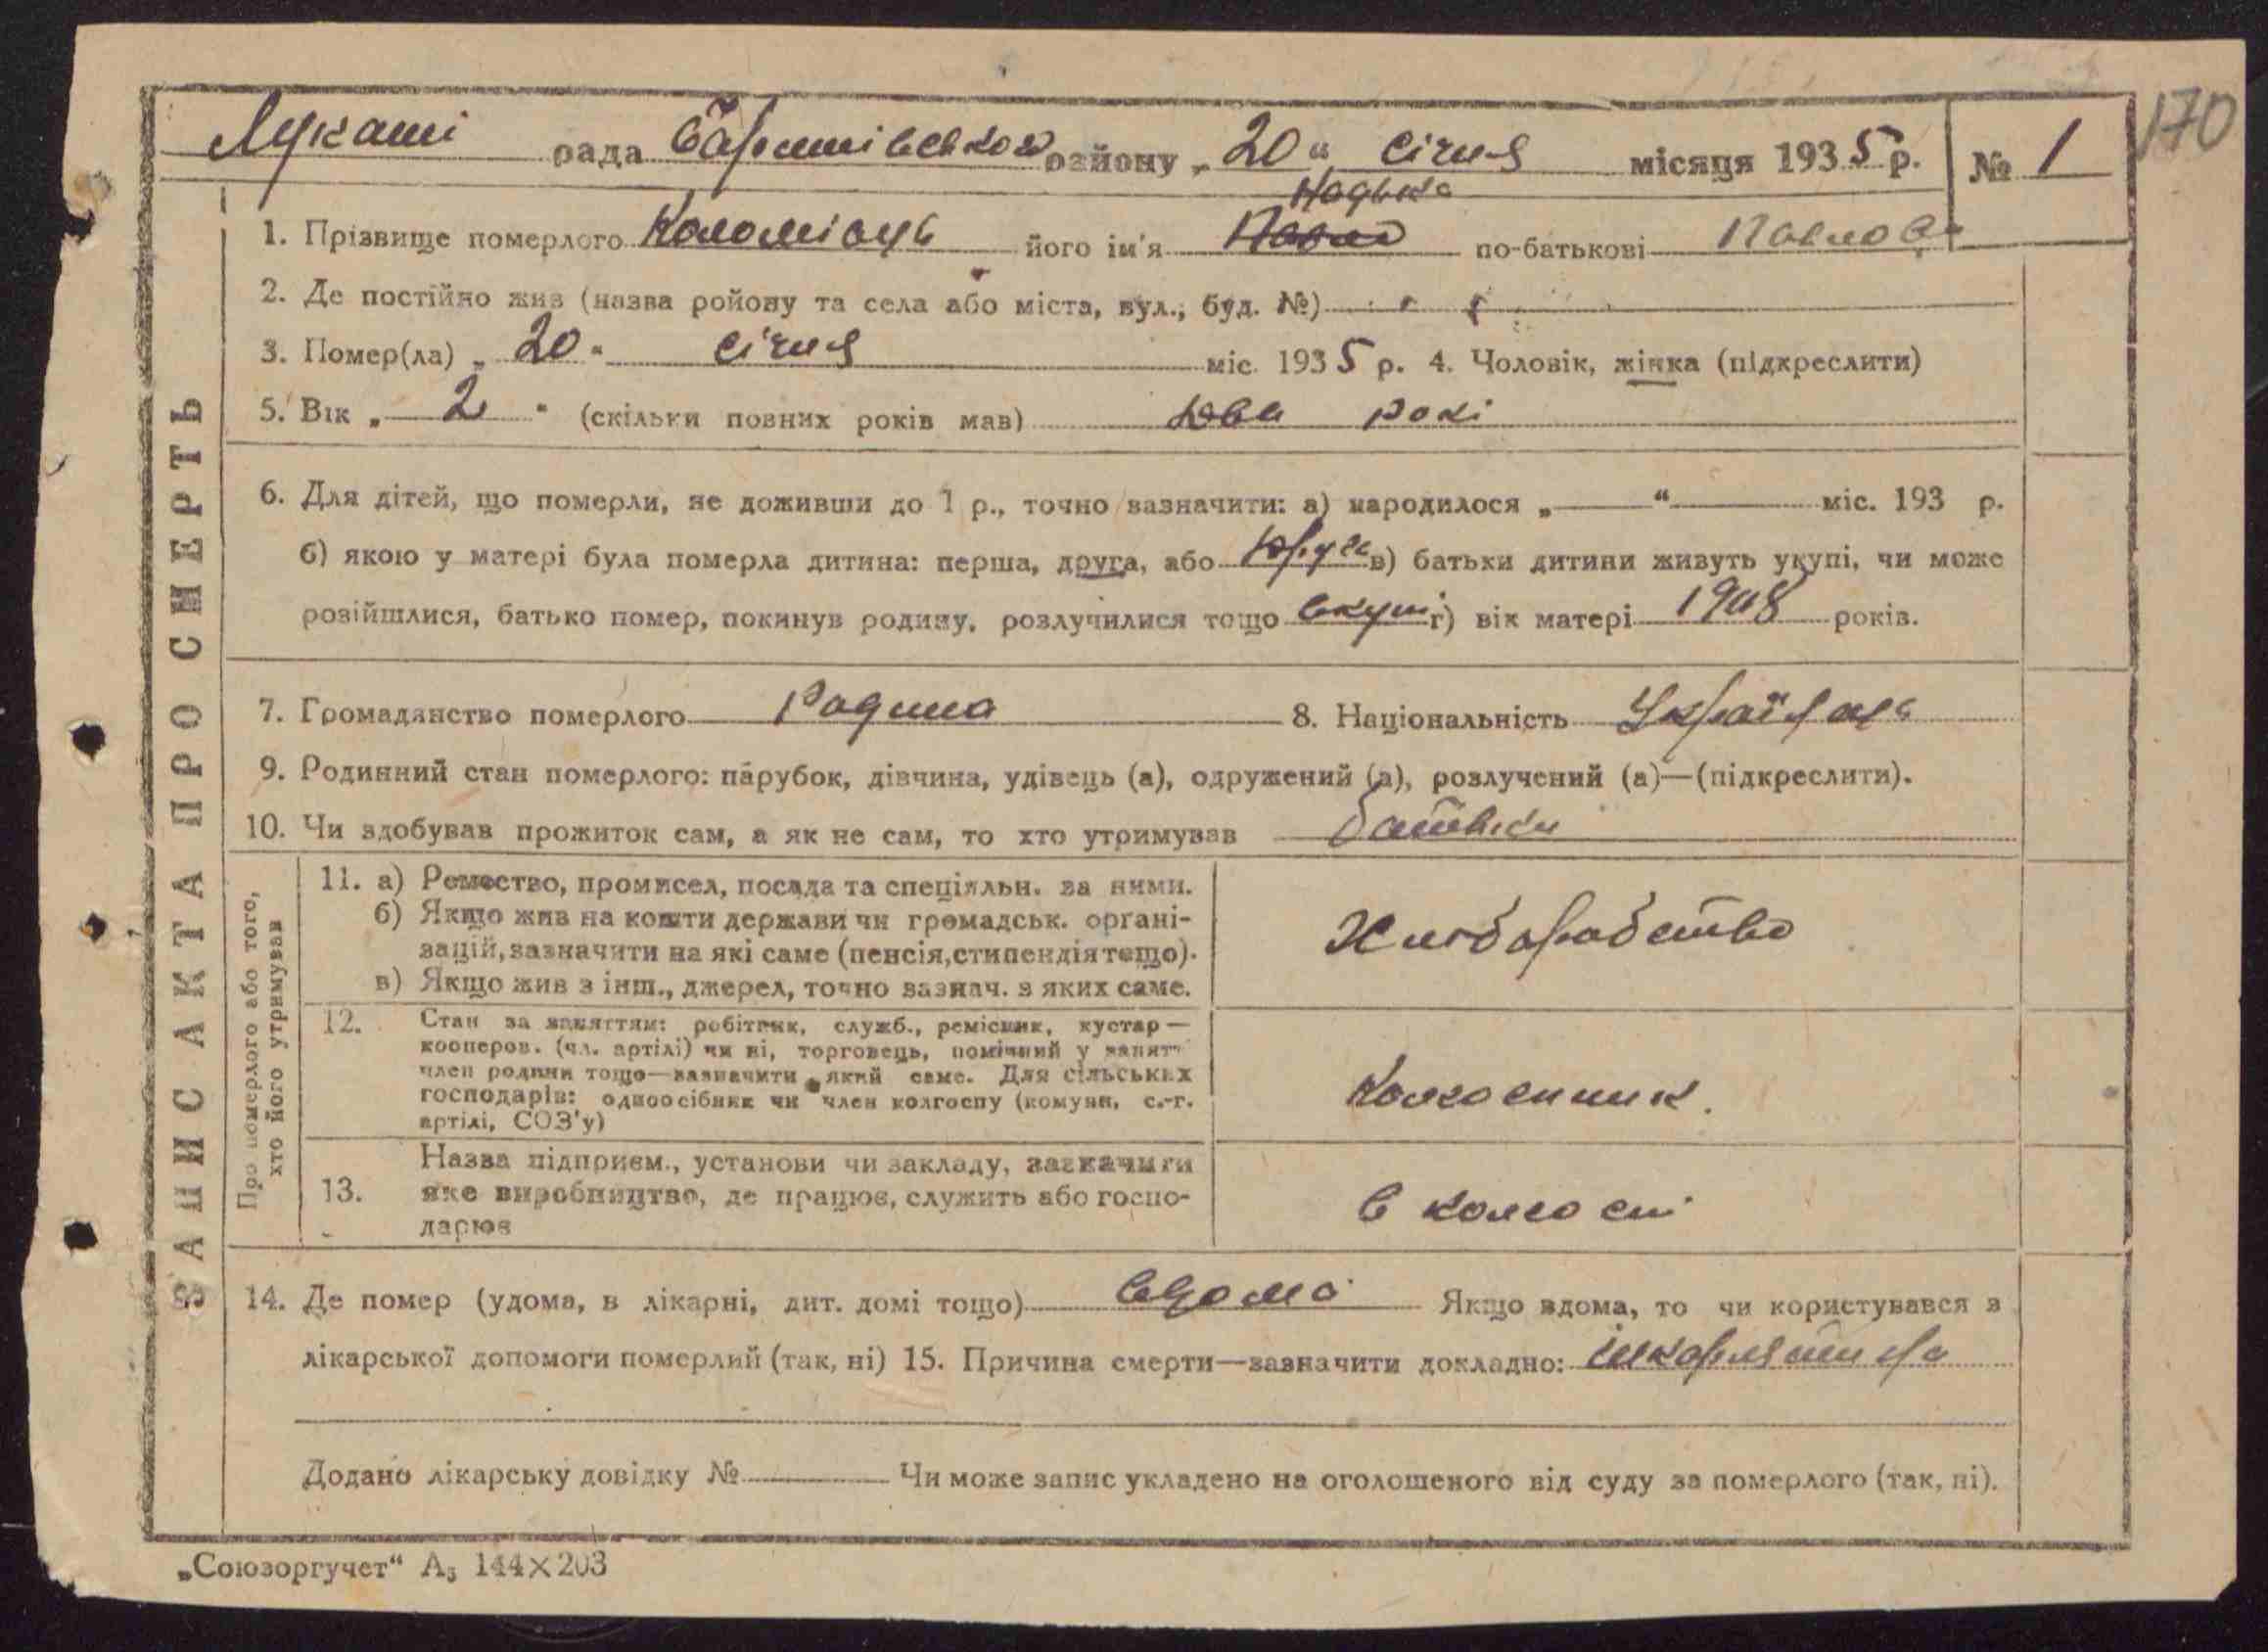 170
Лукаші рада Баришівського району „20“ січня місяця 1935 р. № 1
Надька
1. Прізвище померлого Коломієць його ім'я Павло по-батькові Павлов
2. Де постійно жив (назва ройону та села або міста, вул., буд. №)
3. Помер(ла) „20“ січня міс. 1935 р. 4. Чоловік, жінка (підкреслити)
5. Вік „2“ (скільки повних років мав) два рокі
6. Для дітей, що померли, не доживши до 1 р., точно зазначити: а) народилося „ “ міс. 193 р.
б) якою у матері була померла дитина: перша, друга, або друга в) батьки дитини живуть укупі, чи може
розійшлися, батько помер, покинув родину, розлучилися тощо вкупі г) вік матері 1908 років.
7. Громадянство померлого 8. Національність Українець
9. Родинний стан померлого: парубок, дівчина, удівець (а), одружений (а), розлучений (а)—(підкреслити).
10. Чи здобував прожиток сам, а як не сам, то хто утримував батьки
ЗАПИС АКТА ПРО СМЕРТЬ
Про померлого або того,
хто його утримував
11. а) Ремество, промисел, посада та спеціяльн. за ними.
б) Якщо жив на кошти держави чи громадськ. органі-
зацій, зазначити на які саме (пенсія, стипендія тощо).
в) Якщо жив з інш., джерел, точно зазнач. з яких саме.
Хліборобство
12. Стан за заняттям: робітник, служб., ремісник, кустар—
кооперов. (чл. артілі) чи ні, торговець, помічний у занятт
член родини тощо—зазначити який саме. Для сільських
господарів: одноосібник чи член колгоспу (комуни, с.-г.
артілі, СОЗ'у)
Колхосник.
13. Назва підприєм., установи чи закладу, зазначити
яке виробництво, де працює, служить або госпо-
дарює
в колгоспі
14. Де помер (удома, в лікарні, дит. домі тощо) вдома Якщо вдома, то чи користувався з
лікарської допомоги померлий (так, ні) 15. Причина смерти—зазначити докладно: шкарлятина
Додано лікарську довідку № Чи може запис укладено на оголошеного від суду за померлого (так, ні).
„Союзоргучет“ А₅ 144×203